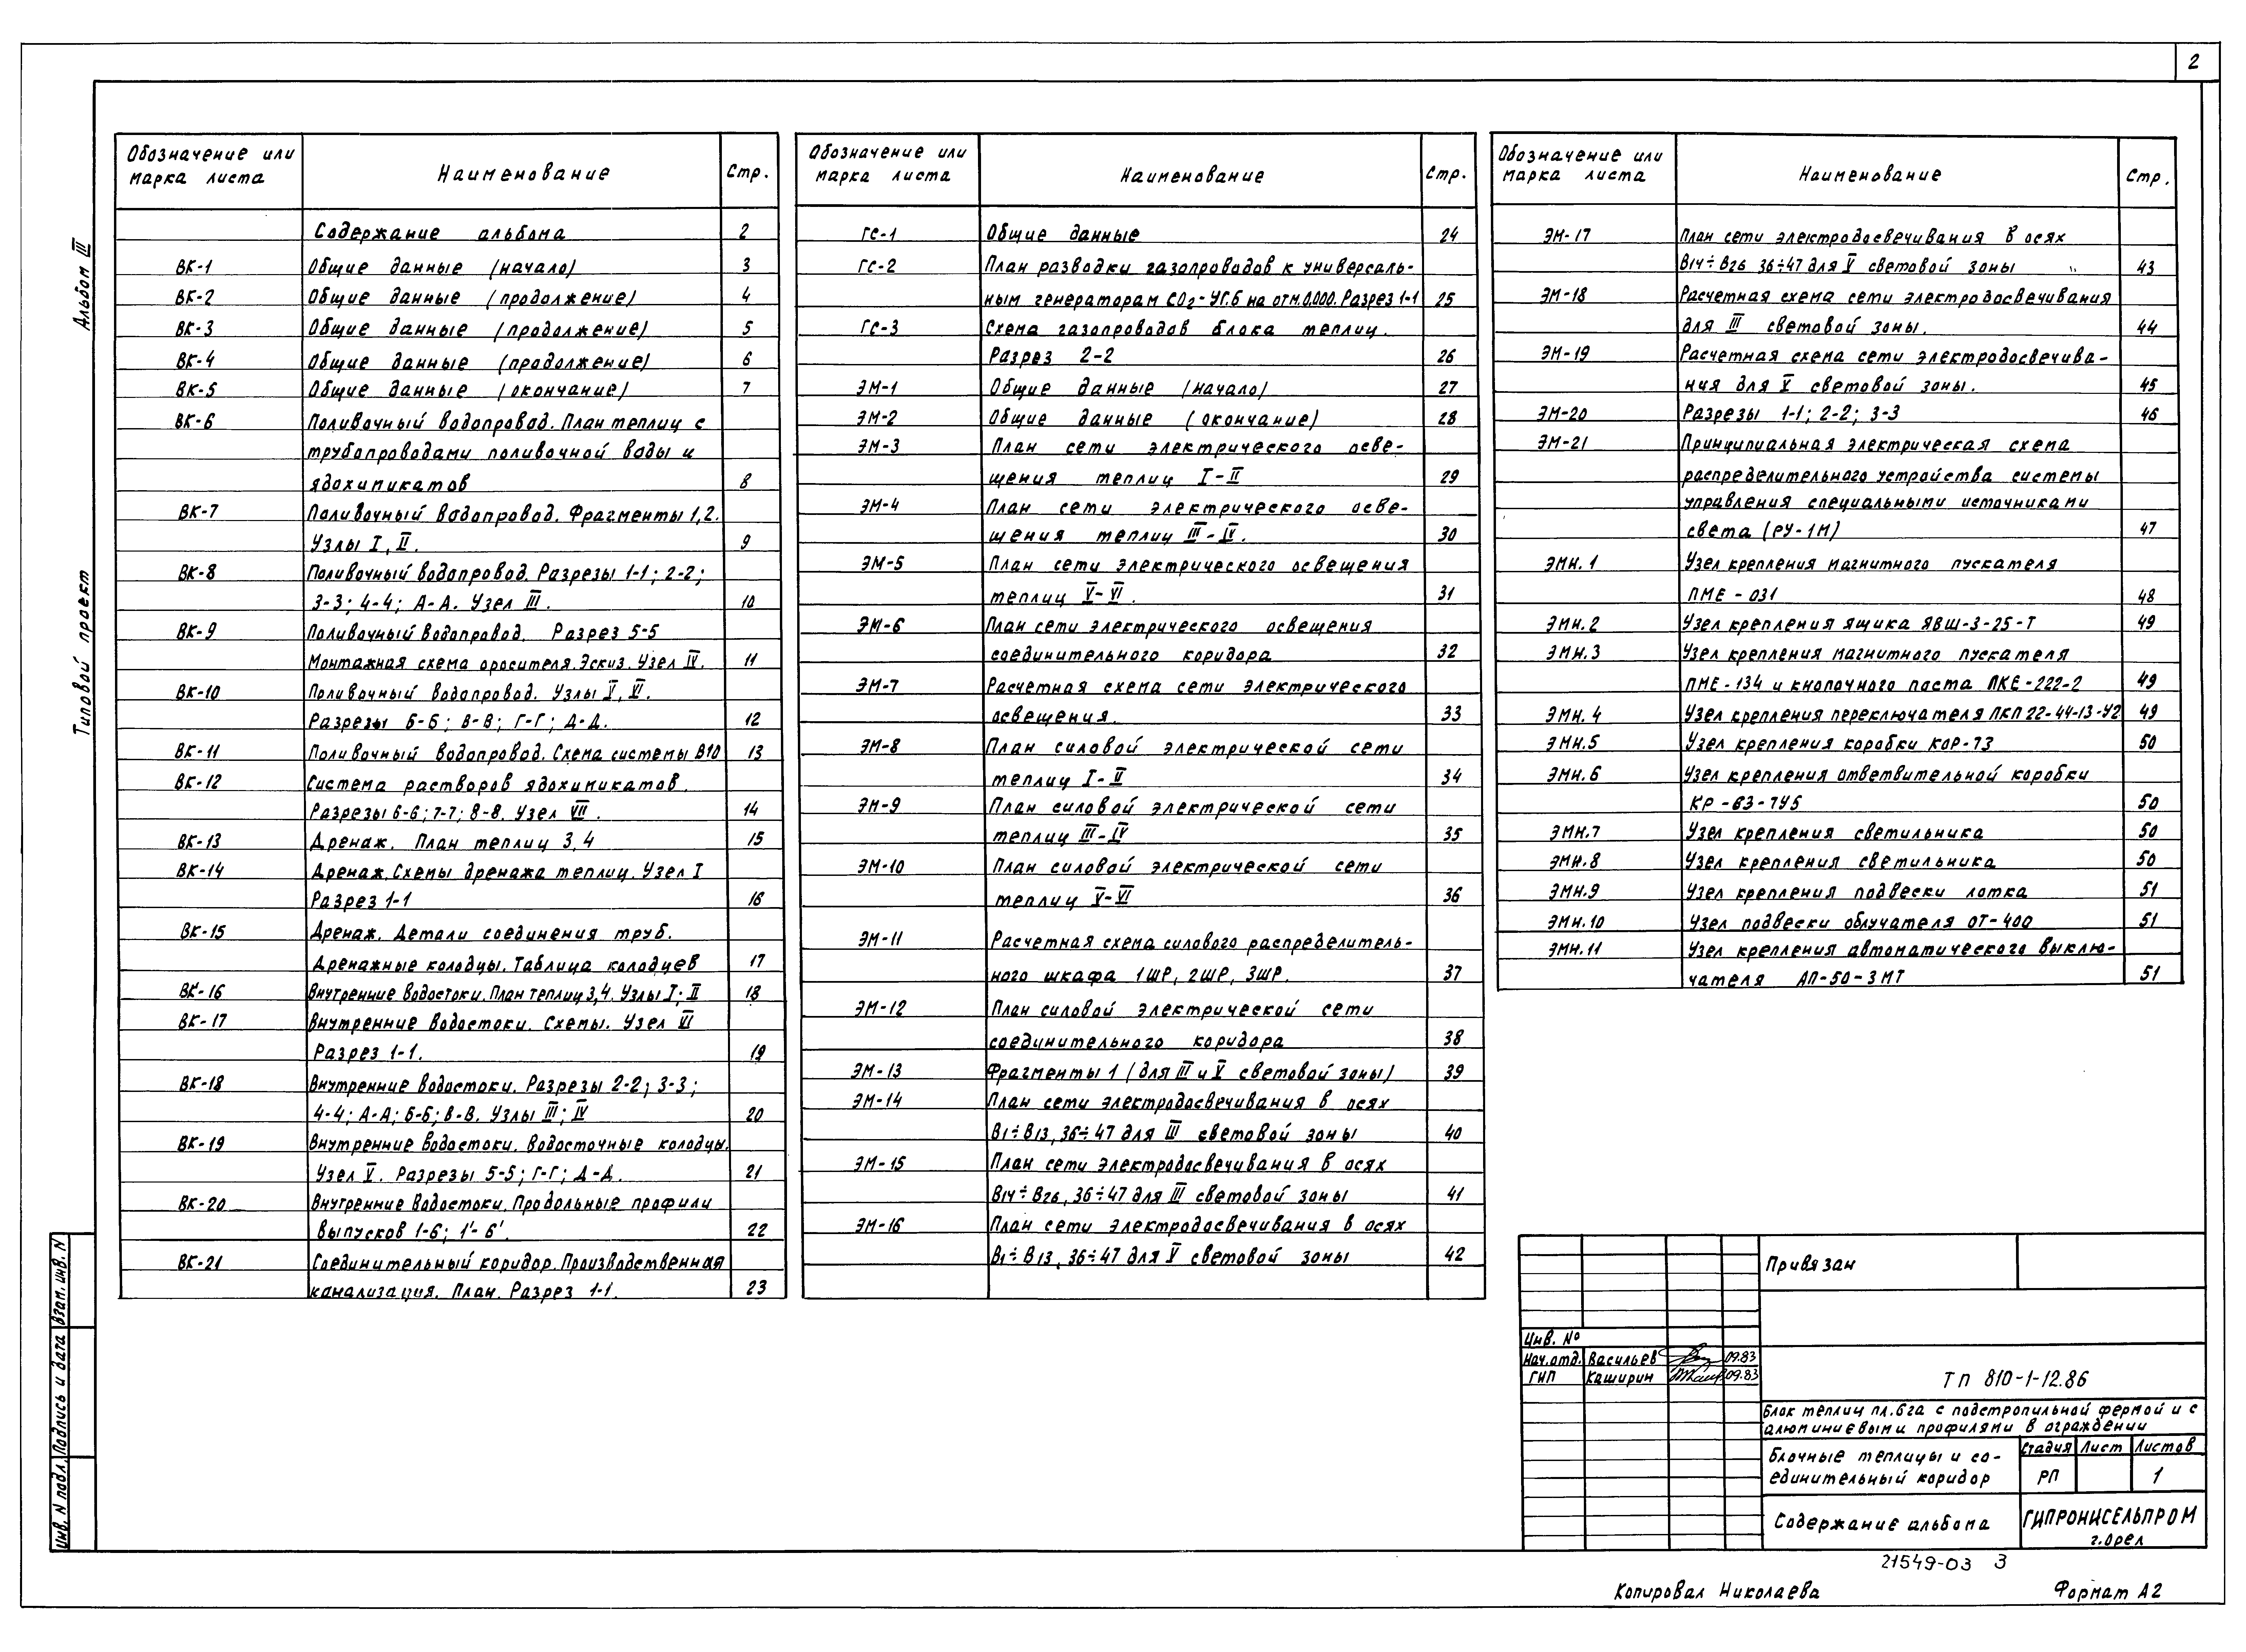 2
Альбом III
Типовой проект
Обозначение или марка листа | Наименование | Стр.
Содержание альбома 2
ВК-1 Общие данные (начало) 3
ВК-2 Общие данные (продолжение) 4
ВК-3 Общие данные (продолжение) 5
ВК-4 Общие данные (продолжение) 6
ВК-5 Общие данные (окончание) 7
ВК-6 Поливочный водопровод. План теплиц с
трубопроводами поливочной воды и
ядохимикатов 8
ВК-7 Поливочный водопровод. Фрагменты 1,2.
Узлы I, II. 9
ВК-8 Поливочный водопровод. Разрезы 1-1; 2-2;
3-3; 4-4; А-А. Узел III. 10
ВК-9 Поливочный водопровод. Разрез 5-5
Монтажная схема оросителя. Эскиз. Узел IV. 11
ВК-10 Поливочный водопровод. Узлы V, VI.
Разрезы Б-Б; В-В; Г-Г; Д-Д. 12
ВК-11 Поливочный водопровод. Схема системы В10 13
ВК-12 Система растворов ядохимикатов.
Разрезы 6-6; 7-7; 8-8. Узел VII. 14
ВК-13 Дренаж. План теплиц 3,4 15
ВК-14 Дренаж. Схемы дренажа теплиц. Узел I
Разрез 1-1 16
ВК-15 Дренаж. Детали соединения труб.
Дренажные колодцы. Таблица колодцев 17
ВК-16 Внутренние водостоки. План теплиц 3,4. Узлы I; II 18
ВК-17 Внутренние водостоки. Схемы. Узел VI
Разрез 1-1. 19
ВК-18 Внутренние водостоки. Разрезы 2-2; 3-3;
4-4; А-А; Б-Б; В-В. Узлы III; IV 20
ВК-19 Внутренние водостоки. Водосточные колодцы.
Узел V. Разрезы 5-5; Г-Г; Д-Д. 21
ВК-20 Внутренние водостоки. Продольные профили
выпусков 1-6; 1'-6'. 22
ВК-21 Соединительный коридор. Производственная
канализация. План. Разрез 1-1. 23
Обозначение или марка листа | Наименование | Стр.
ГС-1 Общие данные 24
ГС-2 План разводки газопроводов к универсаль-
ным генераторам СО2-УГ.6 на отм.0,000. Разрез 1-1 25
ГС-3 Схема газопроводов блока теплиц.
Разрез 2-2 26
ЭМ-1 Общие данные (начало) 27
ЭМ-2 Общие данные (окончание) 28
ЭМ-3 План сети электрического осве-
щения теплиц I-II 29
ЭМ-4 План сети электрического осве-
щения теплиц III-IV. 30
ЭМ-5 План сети электрического освещения
теплиц V-VI. 31
ЭМ-6 План сети электрического освещения
соединительного коридора 32
ЭМ-7 Расчетная схема сети электрического
освещения. 33
ЭМ-8 План силовой электрической сети
теплиц I-II 34
ЭМ-9 План силовой электрической сети
теплиц III-IV 35
ЭМ-10 План силовой электрической сети
теплиц V-VI 36
ЭМ-11 Расчетная схема силового распределитель-
ного шкафа 1ШР, 2ШР, 3ШР. 37
ЭМ-12 План силовой электрической сети
соединительного коридора 38
ЭМ-13 Фрагменты 1 (для III и V световой зоны) 39
ЭМ-14 План сети электродосвечивания в осях
В1÷В13, 36÷47 для III световой зоны 40
ЭМ-15 План сети электродосвечивания в осях
В14÷В26, 36÷47 для III световой зоны 41
ЭМ-16 План сети электродосвечивания в осях
В1÷В13, 36÷47 для V световой зоны 42
Обозначение или марка листа | Наименование | Стр.
ЭМ-17 План сети электродосвечивания в осях
В14÷В26 36÷47 для V световой зоны 43
ЭМ-18 Расчетная схема сети электродосвечивания
для III световой зоны. 44
ЭМ-19 Расчетная схема сети электродосвечива-
ния для V световой зоны. 45
ЭМ-20 Разрезы 1-1; 2-2; 3-3 46
ЭМ-21 Принципиальная электрическая схема
распределительного устройства системы
управления специальными источниками
света (РУ-1М) 47
ЭМН.1 Узел крепления магнитного пускателя
ПМЕ-031 48
ЭМН.2 Узел крепления ящика ЯВШ-3-25-Т 49
ЭМН.3 Узел крепления магнитного пускателя
ПМЕ-134 и кнопочного поста ПКЕ-222-2 49
ЭМН.4 Узел крепления переключателя ПКП 22-44-13-У2 49
ЭМН.5 Узел крепления коробки КОР-73 50
ЭМН.6 Узел крепления ответвительной коробки
КР-83-7У5 50
ЭМН.7 Узел крепления светильника 50
ЭМН.8 Узел крепления светильника 50
ЭМН.9 Узел крепления подвески лотка 51
ЭМН.10 Узел подвески облучателя ОТ-400 51
ЭМН.11 Узел крепления автоматического выклю-
чателя АП-50-3МТ 51
Привязан
Инв. №
Нач.отд. Васильев 09.83
ГИП Каширин 09.83
ТП 810-1-12.86
Блок теплиц пл.6га с подстропильной фермой и с
алюминиевыми профилями в ограждении
Блочные теплицы и со-
единительный коридор
Стадия Лист Листов
РП 1
Содержание альбома
ГИПРОНИСЕЛЬПРОМ
г.Орел
21549-03 3
Копировал Николаева
Формат А2
Инв. N подл. Подпись и дата Взам. инв. N